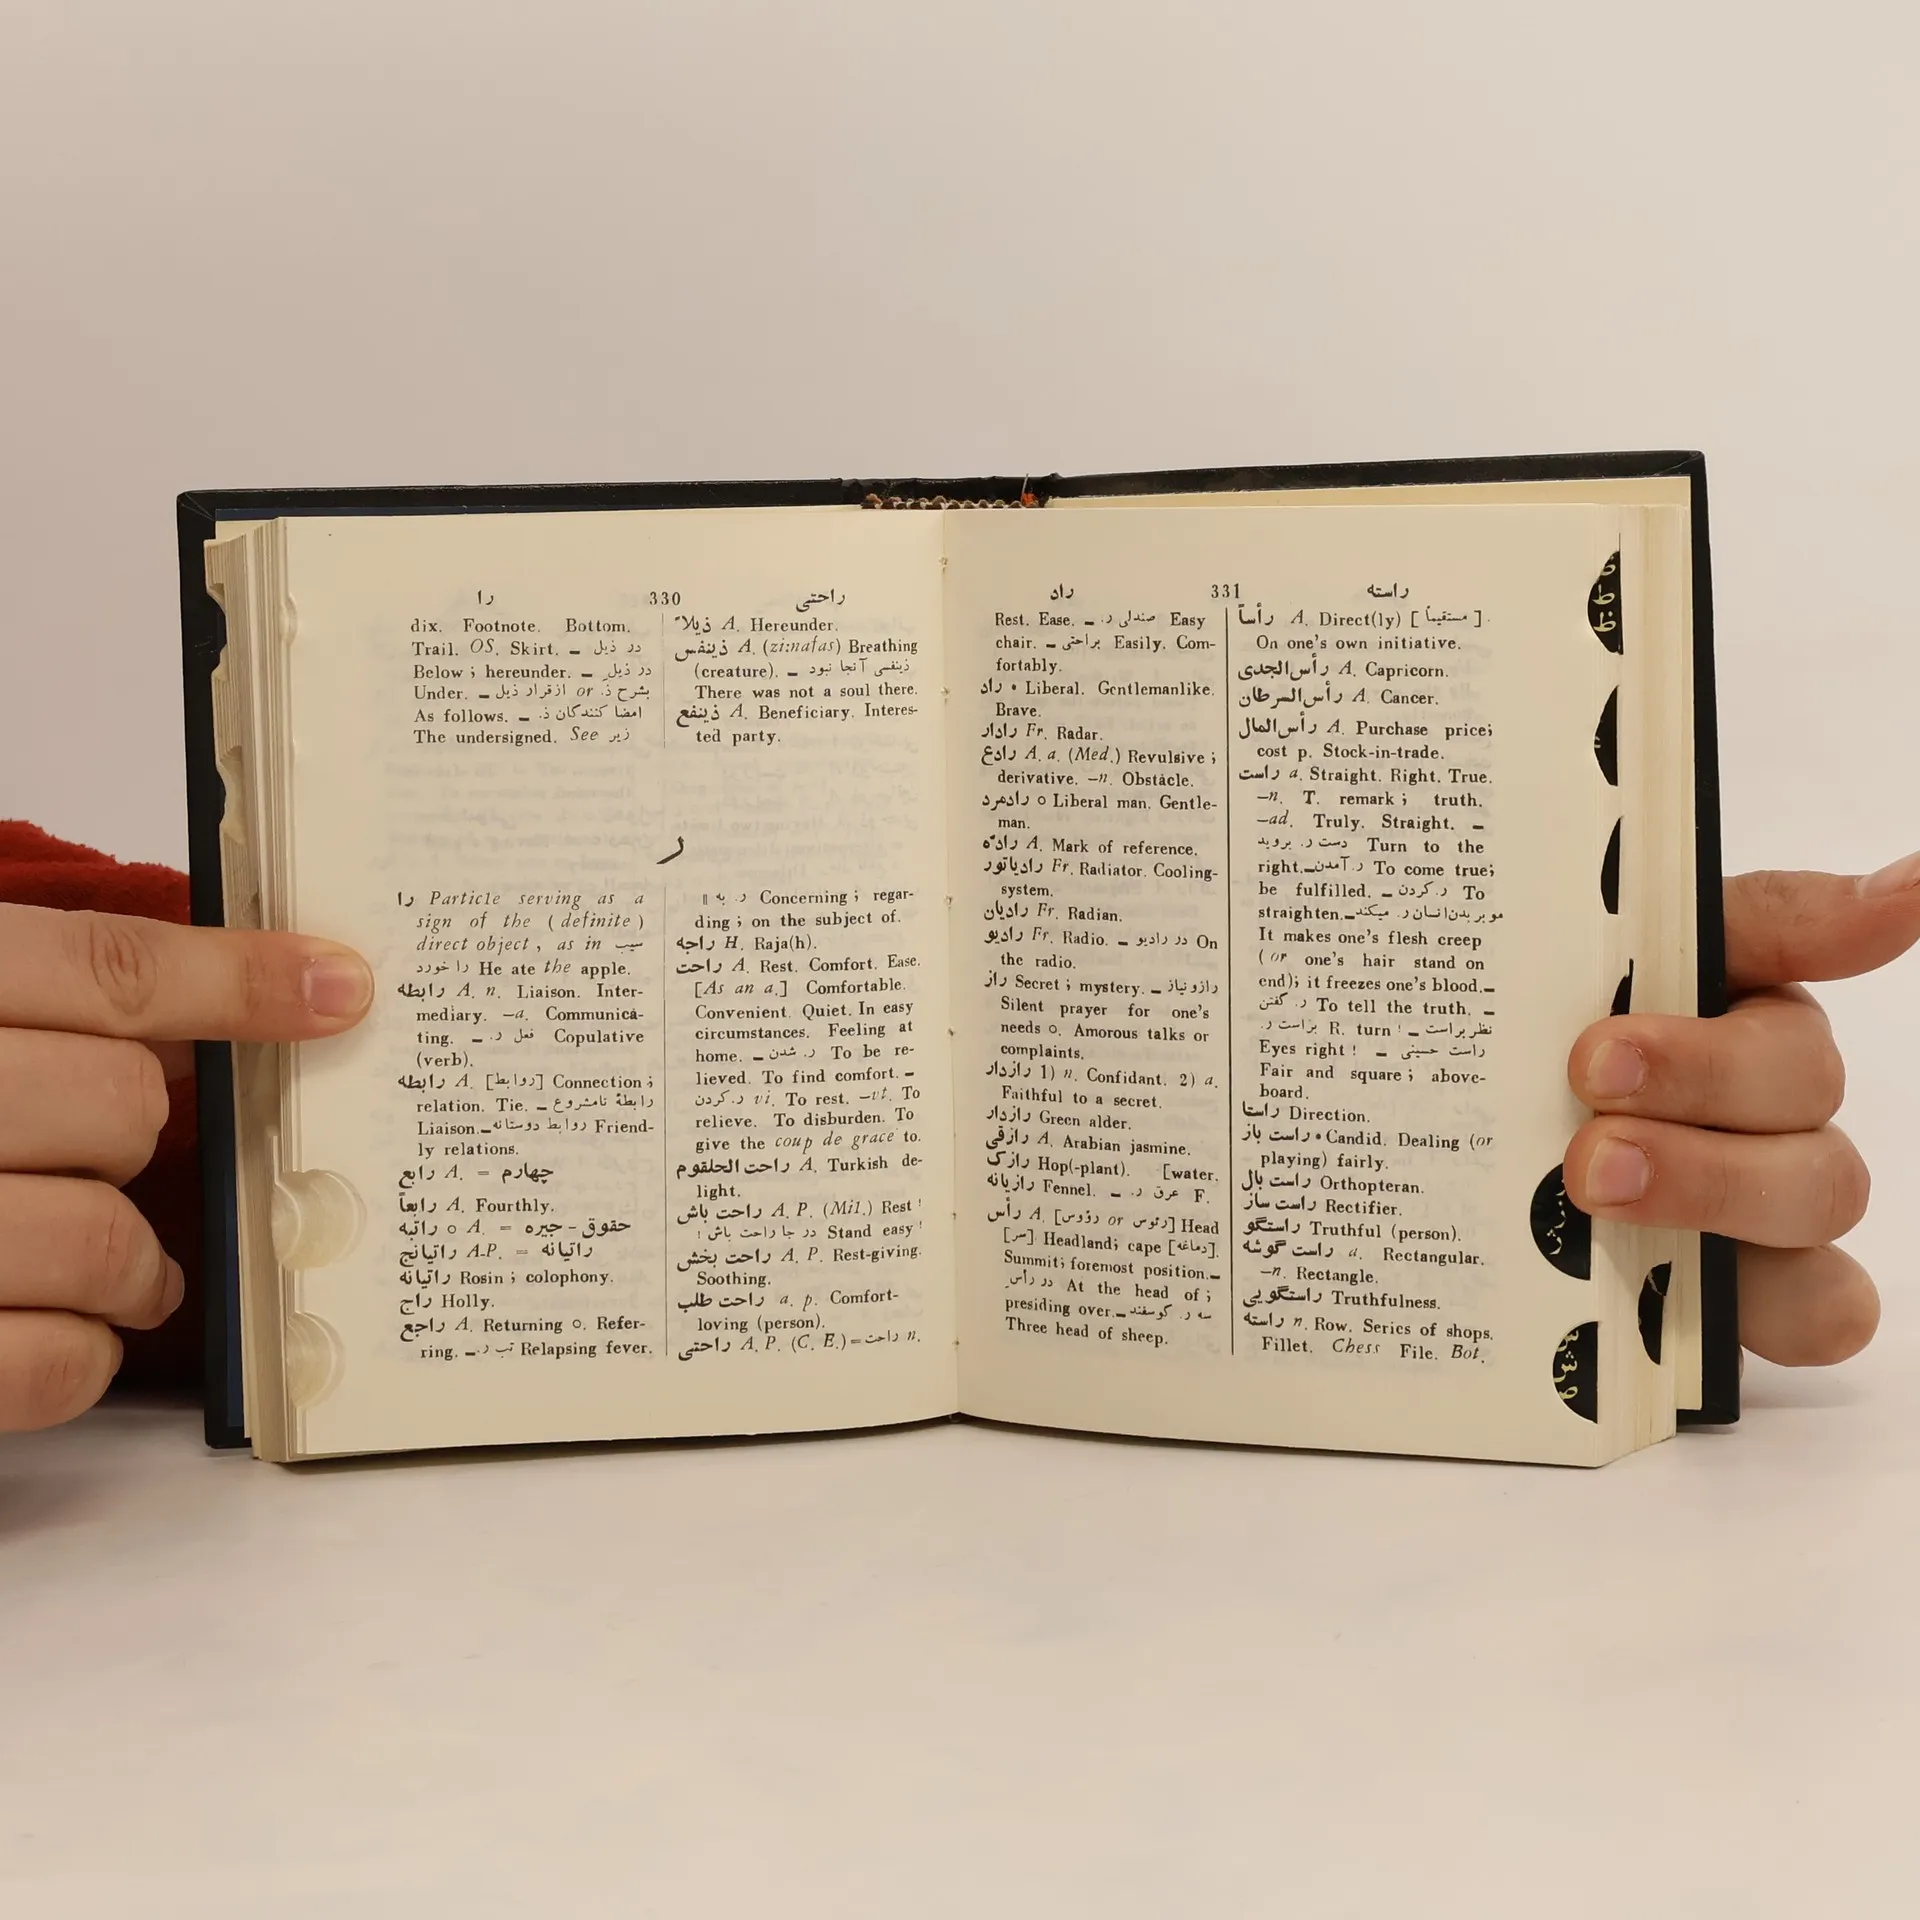 را 330 راحتی
dix. Footnote. Bottom.
Trail. OS. Skirt. – در ذیل
Below ; hereunder. – در ذیل
Under. – ازقرار ذیل or بشرح ذ.
As follows. – امضا کنندگان ذ.
The undersigned. See زیر
ذیلاً A. Hereunder.
ذینفس A. (zi:nafas) Breathing
(creature). – ذینفسی آنجا نبود
There was not a soul there.
ذینفع A. Beneficiary. Interes-
ted party.
ر
را Particle serving as a
sign of the (definite)
direct object, as in سیب
را خورد He ate the apple.
رابطه A. n. Liaison. Inter-
mediary. –a. Communica-
ting. – فعل ر. Copulative
(verb).
رابطه A. [روابط] Connection ;
relation. Tie. – رابطهٔ نامشروع
Liaison. – روابط دوستانه Friend-
ly relations.
رابع A. = چهارم
رابعاً A. Fourthly.
راتبه o A. = حقوق - جیره
راتیانج A-P. = راتیانه
راتیانه Rosin ; colophony.
راج Holly.
راجع A. Returning o. Refer-
ring. – تب ر. Relapsing fever.
‖ ر. به Concerning ; regar-
ding ; on the subject of.
راجه H. Raja(h).
راحت A. Rest. Comfort. Ease.
[As an a.] Comfortable.
Convenient. Quiet. In easy
circumstances. Feeling at
home. – ر. شدن To be re-
lieved. To find comfort. –
ر. کردن vi. To rest. –vt. To
relieve. To disburden. To
give the coup de grace to.
راحت الحلقوم A. Turkish de-
light.
راحت باش A. P. (Mil.) Rest !
در جا راحت باش ! Stand easy !
راحت بخش A. P. Rest-giving.
Soothing.
راحت طلب a. p. Comfort-
loving (person).
راحتی A. P. (C. E.) = راحت n.
راد 331 راسته
Rest. Ease. – صندلی ر. Easy
chair. – براحتی Easily. Com-
fortably.
راد • Liberal. Gentlemanlike.
Brave.
رادار Fr. Radar.
رادع A. a. (Med.) Revulsive ;
derivative. –n. Obstacle.
رادمرد o Liberal man. Gentle-
man.
رادّه A. Mark of reference.
رادیاتور Fr. Radiator. Cooling-
system.
رادیان Fr. Radian.
رادیو Fr. Radio. – در رادیو On
the radio.
راز Secret ; mystery. – رازونیاز
Silent prayer for one's
needs o. Amorous talks or
complaints.
رازدار 1) n. Confidant. 2) a.
Faithful to a secret.
رازدار Green alder.
رازقی A. Arabian jasmine.
رازک Hop(-plant). [water.
رازیانه Fennel. – عرق ر. F.
رأس A. [رئوس or رؤوس] Head
[سر]. Headland ; cape [دماغه].
Summit ; foremost position. –
در رأس At the head of ;
presiding over. – سه ر. گوسفند
Three head of sheep.
رأساً A. Direct(ly) [مستقیماً].
On one's own initiative.
رأس الجدی A. Capricorn.
رأس السرطان A. Cancer.
رأس المال A. Purchase price;
cost p. Stock-in-trade.
راست a. Straight. Right. True.
–n. T. remark ; truth.
–ad. Truly. Straight. –
دست ر. بروید Turn to the
right. – ر. آمدن To come true;
be fulfilled. – ر. کردن To
straighten. – مو بر بدن انسان ر. میکند
It makes one's flesh creep
(or one's hair stand on
end); it freezes one's blood. –
ر. گفتن To tell the truth. –
براست ر. R. turn ! – نظر براست
Eyes right ! – راست حسینی
Fair and square ; above-
board.
راستا Direction.
راست باز • Candid. Dealing (or
playing) fairly.
راست بال Orthopteran.
راست ساز Rectifier.
راستگو Truthful (person).
راست گوشه a. Rectangular.
–n. Rectangle.
راستگویی Truthfulness.
راسته n. Row. Series of shops.
Fillet. Chess File. Bot.
ط-ظ